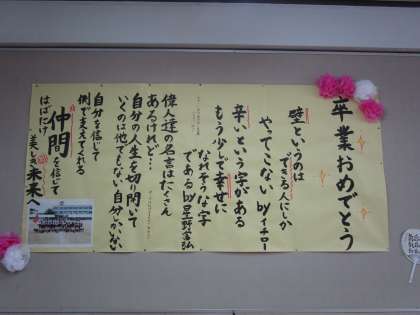 卒業おめでとう
壁というのは
できる人にしか
やってこない byイチロー
辛いという字がある
もう少しで幸せに
なれそうな字
である by星野富弘
偉人達の名言はたくさん
あるけれど…
自分の人生を切り開いて
いくのは他でもない自分しかいない
自分を信じて
側で支えてくれる
仲間を信じて
はばたけ
美しき未来へ